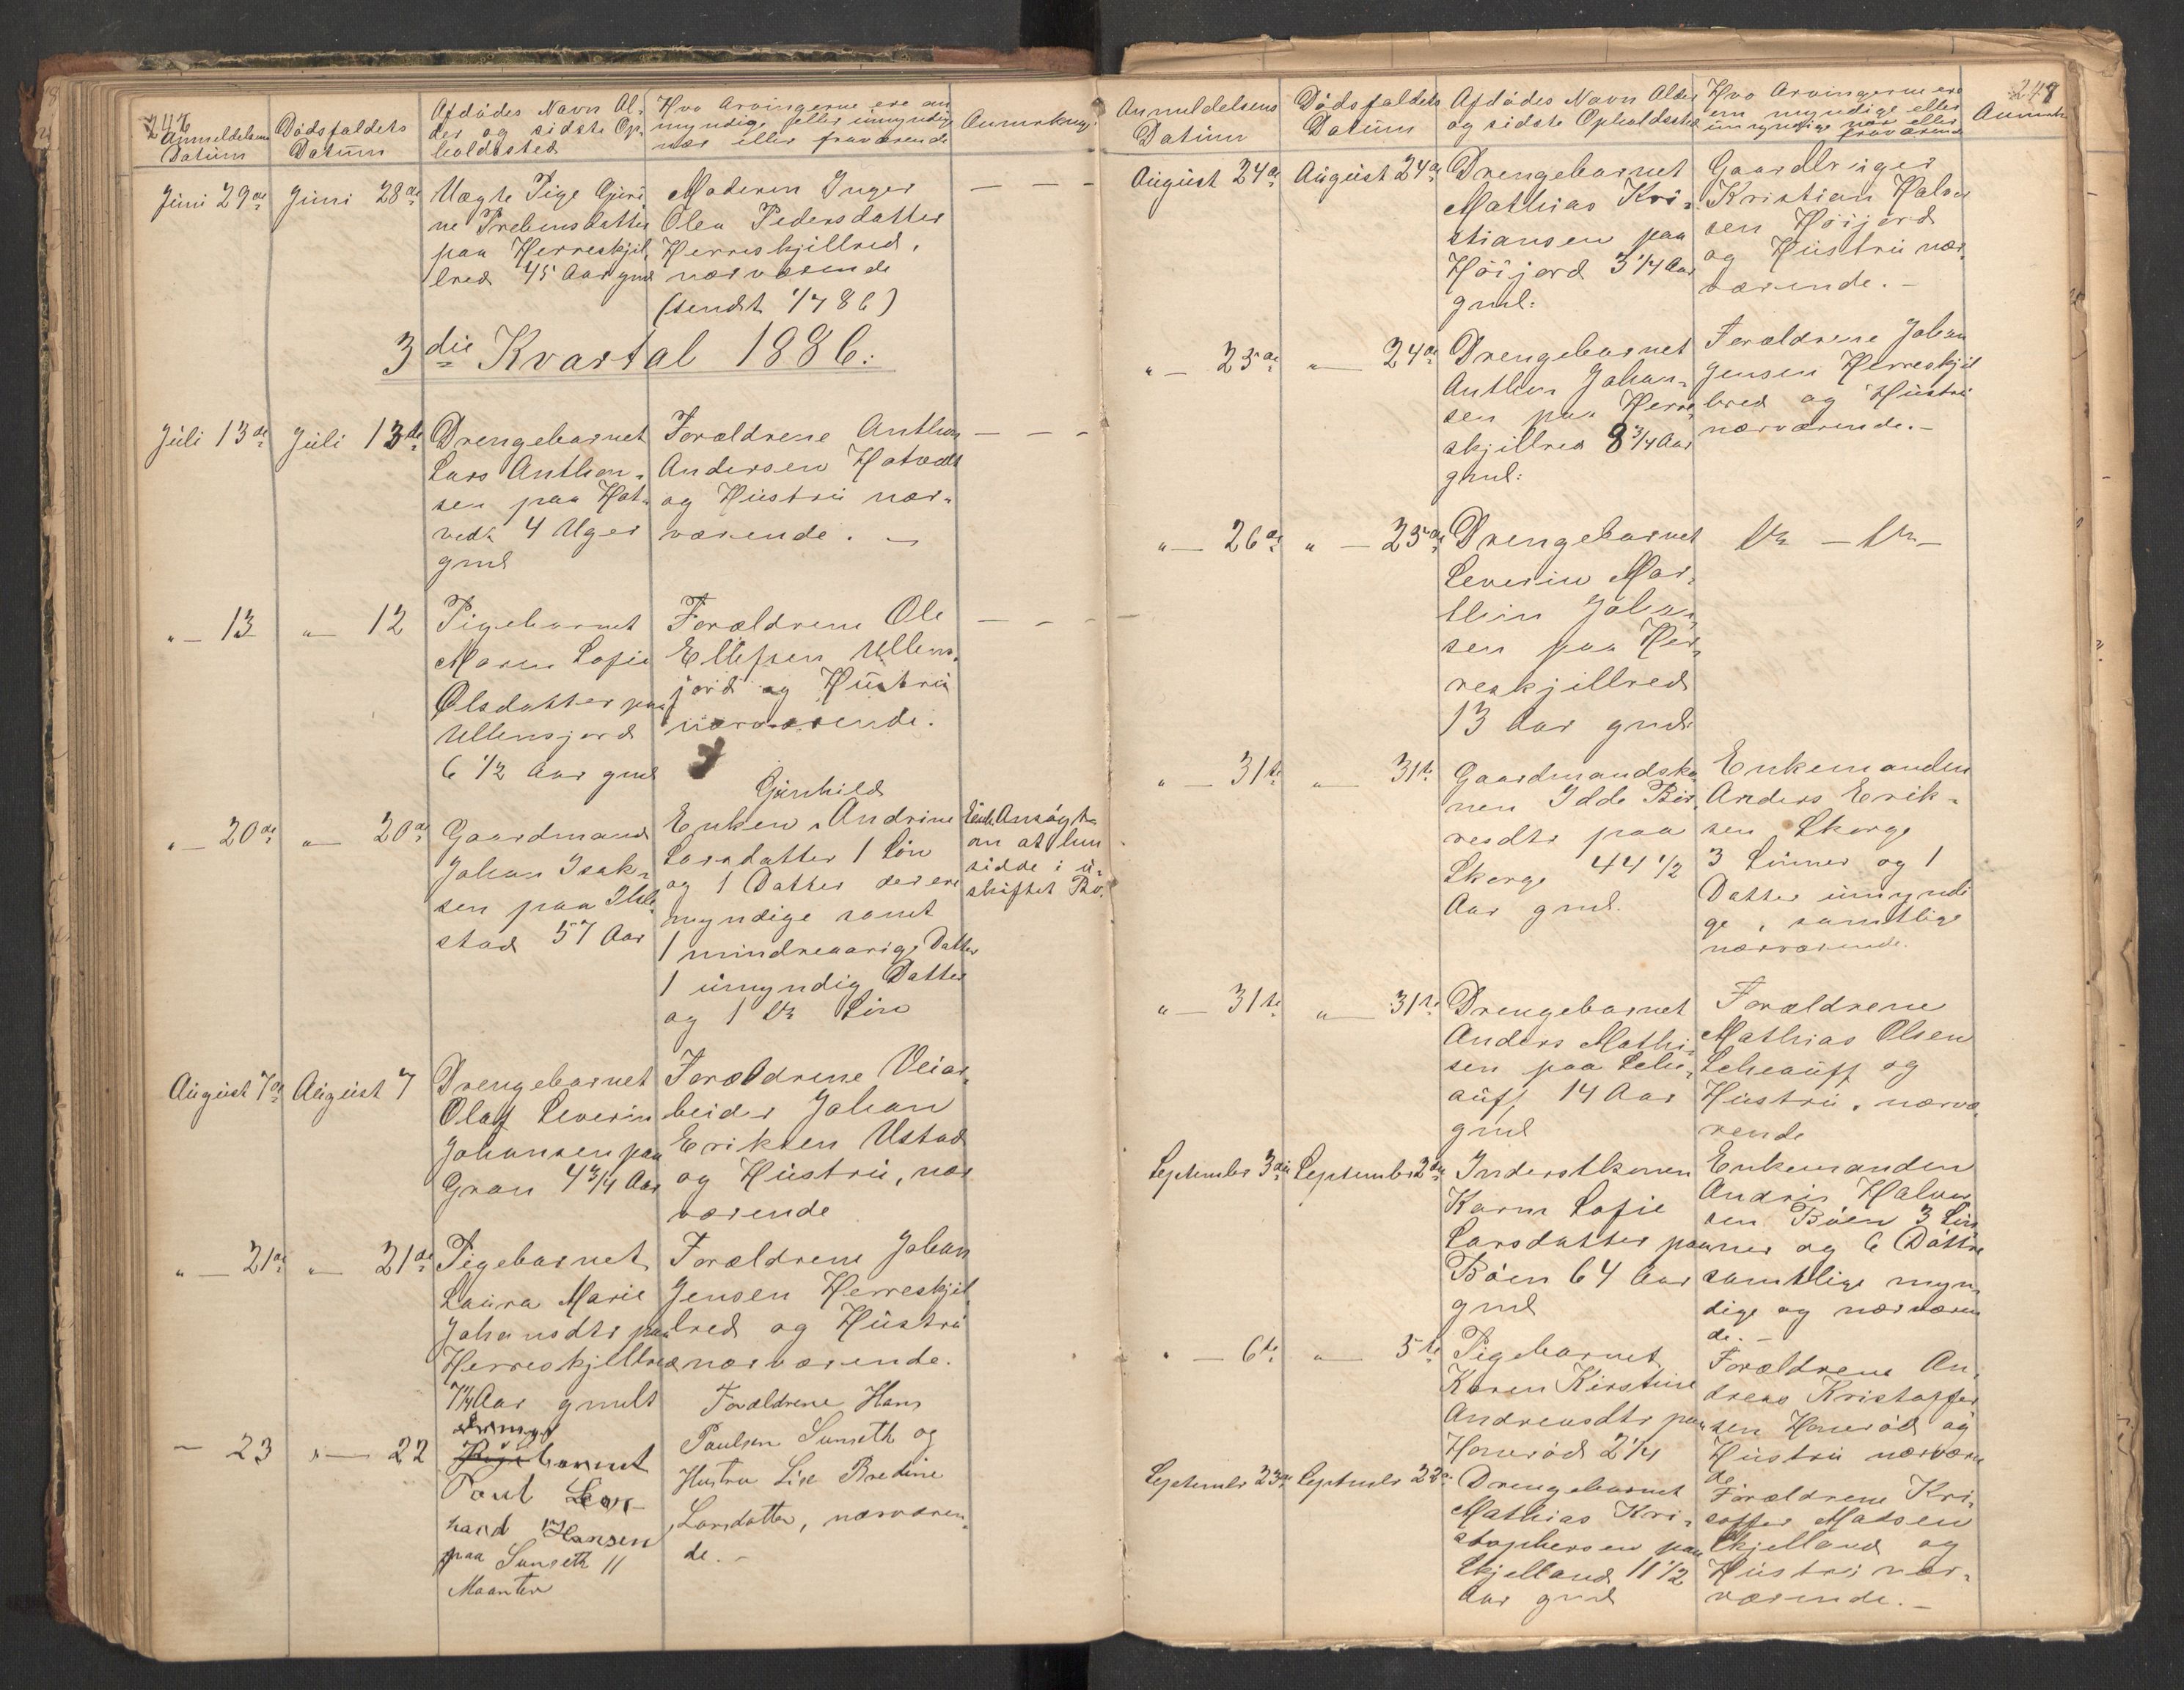 Anmeldelsens
Datum
Dödsfaldets
Datum
Afdödes Navn Al-
der og sidste Op-
holdssted
Hvo Arvingerne ere om
myndige eller umyndige
nær eller fraværende
Anmerkning.
Juni 29de
Juni 28de
Uægte Pige Guri-
ne Prebensdatter
paa Herreskjil-
lred 45 Aar gml
Moderen Inger
Olea Pedersdatter
Herreskjillred,
nærværende
(sendt 1/7 86)
3die Kvartal 1886:
Juli 13de
Juli 13de
Drengebarnet
Lars Anthon-
sen paa Hot-
vedt 4 Uger
gml
Forældrene Anthon
Andersen Hotvedt
og Hustru nær-
værende. -
" - 13
" - 12
Pigebarnet
Maren Sofie
Olsdatter paa
Ullensjord
6 1/2 Aar gml
Forældrene Ole
Ellefsen Ullens-
jord og Hustru
nærværende.
" - 20de
" - 20de
Gaardmand
Johan Isak-
sen paa
stad 57 Aar
Gunhild
Enken Andrine
Larsdatter 1 Sön
og 1 Datter der ere
myndige samt
1 mindreaarig Datter
1 umyndig Datter
og 1 do Sön
Enk. Ansögt
om at hun
sidde i u-
skiftet Bo.
August 7de
August 7
Drengebarnet
Olaf Severin
Johansen paa
Gran 4 3/4 Aar
Forældrene Veiar-
beider Johan
Eriksen Ustad
og Hustru, nær
værende
" - 21de
" - 21de
Pigebarnet
Laura Marie
Johansdtr paa
Herreskjellred
7 1/4 Aar gmlt
Forældrene Johan
Jensen Herreskjil-
lred og Hustru
nærværende.
- 23
" - 22
Drenge
Pigebarnet
Paul Leon-
hard Hansen
paa Sunseth 11
Maaneder
Forældrene Hans
Paulsen Sunseth og
Hustru Lise Bredine
Larsdatter, nærværen-
de. -
248
Anmeldelsens
Datum
Dödsfaldets
Datum
Afdödes Navn Alder
og sidste Opholdssted
Hvo Arvingerne ere
om myndige eller
umyndige nær eller
fraværende
Anmerk
August 24de
August 24de
Drengebarnet
Mathias Kri-
stiansen paa
Höijord 3 1/4 Aar
gml:
Gaardbruger
Kristian Halvor
sen Höijord
og Hustru nær-
værende. -
" - 25de
" - 24de
Drengebarnet
Anthon Johan-
sen paa Herre-
skjillred 8 3/4 Aar
gml:
Forældrene Johan
Jensen Herreskjil
lred og Hustru
nærværende. -
" - 26de
" - 25de
Drengebarnet
Severin Mar-
thin Johan-
sen paa Her-
reskjillred
13 Aar gml:
do - do -
" - 31te
" - 31te
Gaardmandsko-
nen Idde Bir-
resdtr paa
Skorge 44 1/2
Aar gml.
Enkemanden
Anders Erik-
sen Skorge
3 Sönner og 1
Datter umyndi
ge, samtlige
nærværende.
" - 31te
" - 31te
Drengebarnet
Anders Mathi-
sen paa Sche-
auff 14 Aar
gml
Forældrene
Mathias Olsen
Scheauff og
Hustru, nærvæ-
rende
September 3die
September 2den
Inderstkonen
Karen Sofie
Larsdatter paa
Böen 64 Aar
gml
Enkemanden
Andris Halvor
sen Böen 3 Sön
ner og 6 Döttre
samtlige myn-
dige og nærværen
de. -
" - 6te
" - 5te
Pigebarnet
Karen Kirstine
Andreasdtr paa
Honeröd 2 1/4
Forældrene An-
dreas Kristoffer
sen Honeröd og
Hustru nærværen
de
September 23de
Septembr 22de
Drengebarnet
Mathias Kri-
stophersen paa
Skjelland 11 1/2
Aar gml
Forældrene Kri-
stoffer Matsen
Skjelland og
Hustru nær-
værende. -